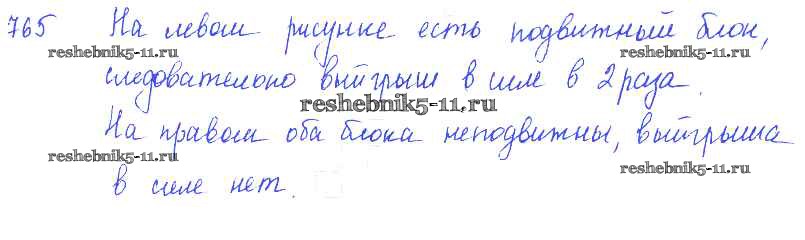 765 На левом рисунке есть подвижный блок,
reshebnik5-11.ru reshebnik5-11.ru
следовательно выигрыш в силе в 2 раза.
reshebnik5-11.ru
На правом оба блока неподвижны, выигрыша
reshebnik5-11.ru reshebnik5-11.ru
в силе нет.